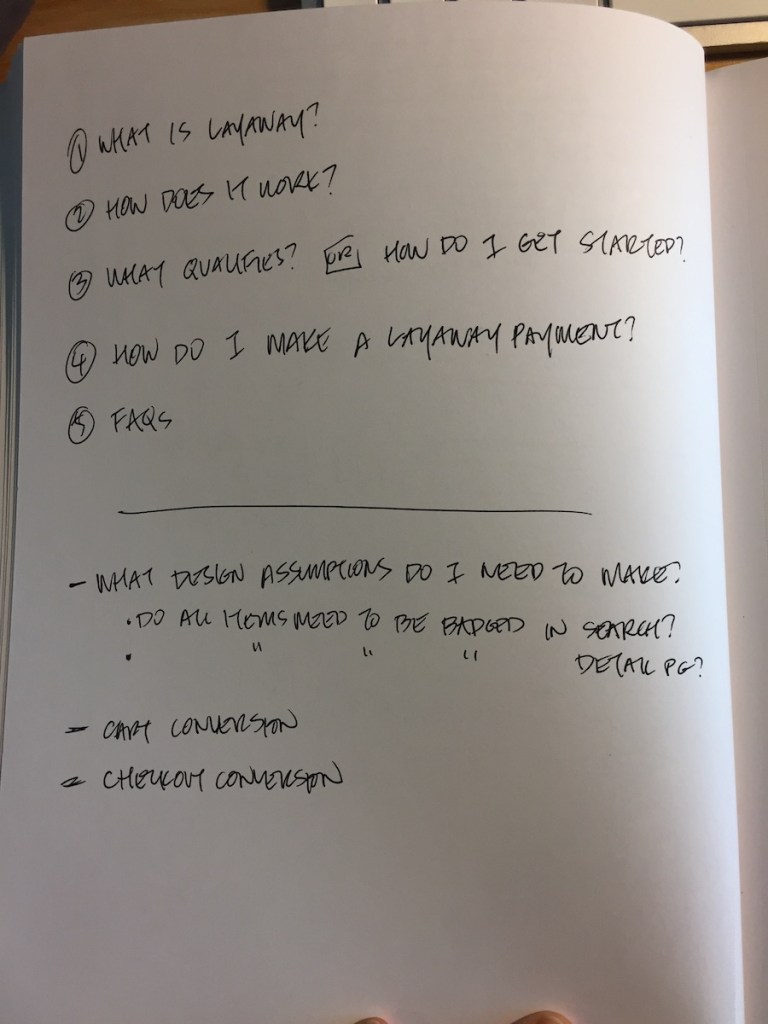 ① WHAT IS LAYAWAY?
② HOW DOES IT WORK?
③ WHAT QUALIFIES? OR HOW DO I GET STARTED?
④ HOW DO I MAKE A LAYAWAY PAYMENT?
⑤ FAQS
- WHAT DESIGN ASSUMPTIONS DO I NEED TO MAKE?
• DO ALL ITEMS NEED TO BE BADGED IN SEARCH?
• " " " DETAIL PG?
- CART CONVERSION
- CHECKOUT CONVERSION